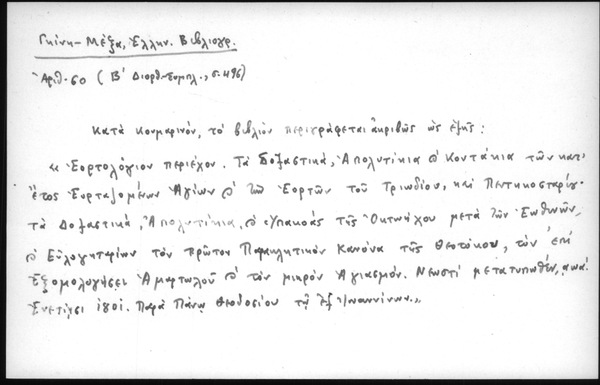 Γκίνη-Μέξα, Ἑλλην. Βιβλιογρ.
Ἀριθ. 60 (Β' Διορθ.-Συμπλ., σ. 496)
Κατὰ Κουμαρινόν, τὸ βιβλίον περιγράφεται ἀκριβῶς ὡς ἑξῆς:
« Ἑορτολόγιον περιέχον. Τὰ δοξαστικά, Ἀπολυτίκια & Κοντάκια τῶν κατ'
ἔτος Ἑορταζομένων Ἁγίων & τῶν Ἑορτῶν τοῦ Τριωδίου, καὶ Πεντηκοσταρίου.
τὰ Δοξαστικά, Ἀπολυτίκια, & Ὑπακοάς τῆς Ὀκτωήχου μετὰ τῶν Ἑωθινῶν,
& Εὐλογηταρίων τὸν πρῶτον Παρακλητικὸν Κανόνα τῆς Θεοτόκου, τὸν ἐπὶ
Ἐξομολογήσει Ἁμαρτωλοῦ & τὸν μικρὸν Ἁγιασμόν. Νεωστὶ μετατυπωθέν,
Ἐνετίησι Παρὰ Πάνῳ Θεοδοσίου τῷ ἐξ Ἰωαννίνων.»